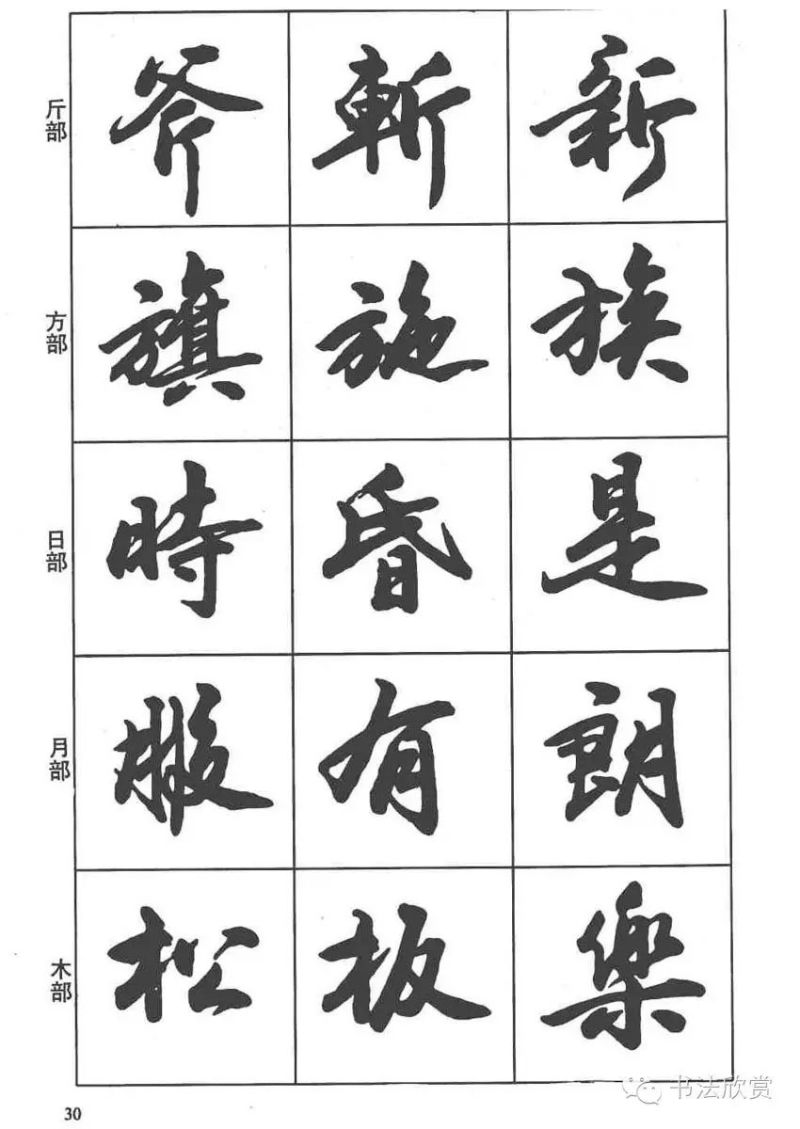 斤部 斧 斬 新
方部 旗 施 族
日部 時 昏 是
月部 服 有 朗
木部 松 板 樂
30
书法欣赏